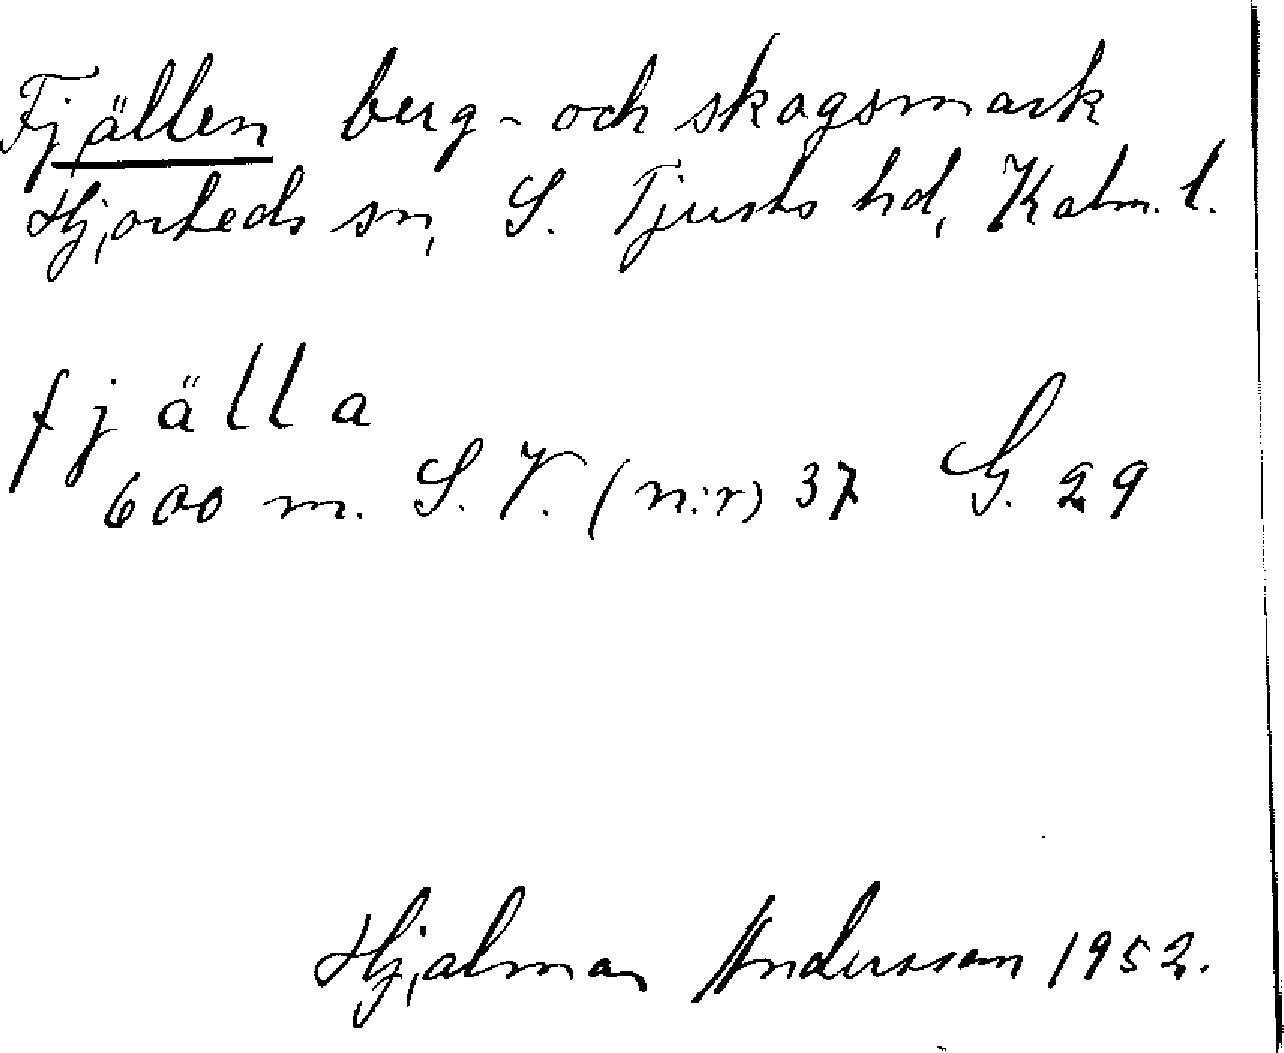 Fjällen berg- och skogsmark
Hjorteds sn, S. Tjusts hd, Kalm. l.
fjälla
600 m. S. V. (n:r) 37 G. 29
Hjalmar Andersson 1952.